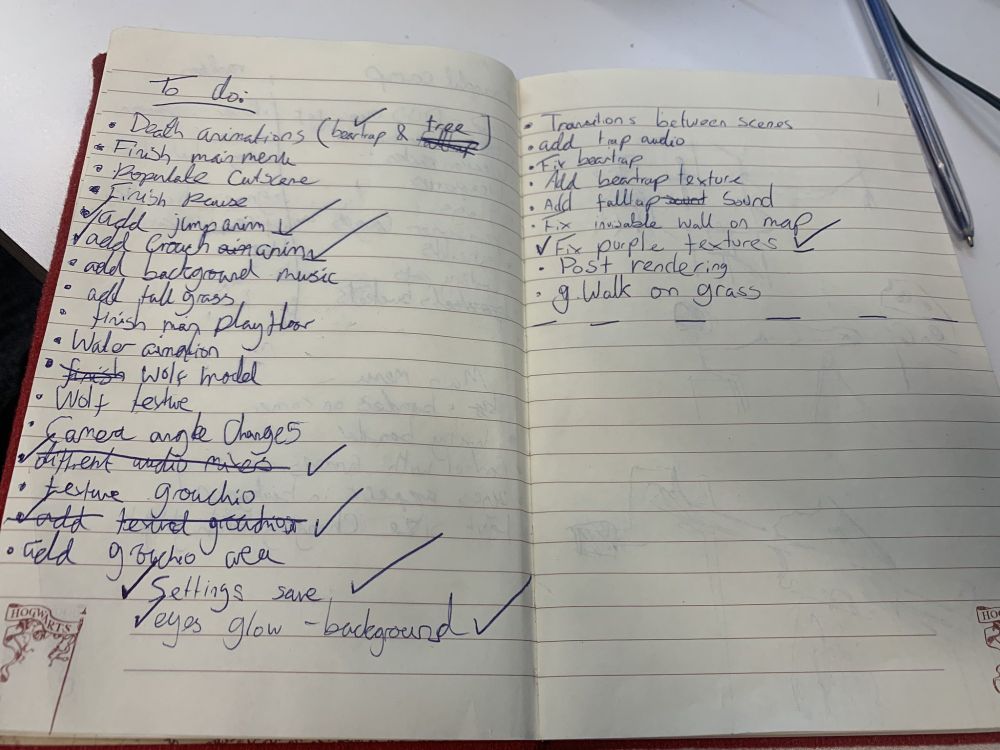 To do:
• Death animations (beartrap & tree)
• Finish main menu
• Populate Cutscene
• Finish Pause
• add jump anim
• add Crouch anim
• add background music
• add tall grass
• finish man playfloor
• Water aimation
• finish wolf model
• Wolf testure
• Camera angle Changes
• diffrent audio mixes
• testure grouchio
• add
• add grouchio area
Settings save
eyes glow - background
HOGWARTS
• Transitions between scenes
• add trap audio
• Fix beartrap
• Add beartrap texture
• Add falltap sound Sound
• Fix invisable wall on map
Fix purple textures
• Post rendering
• g.Walk on grass
HO